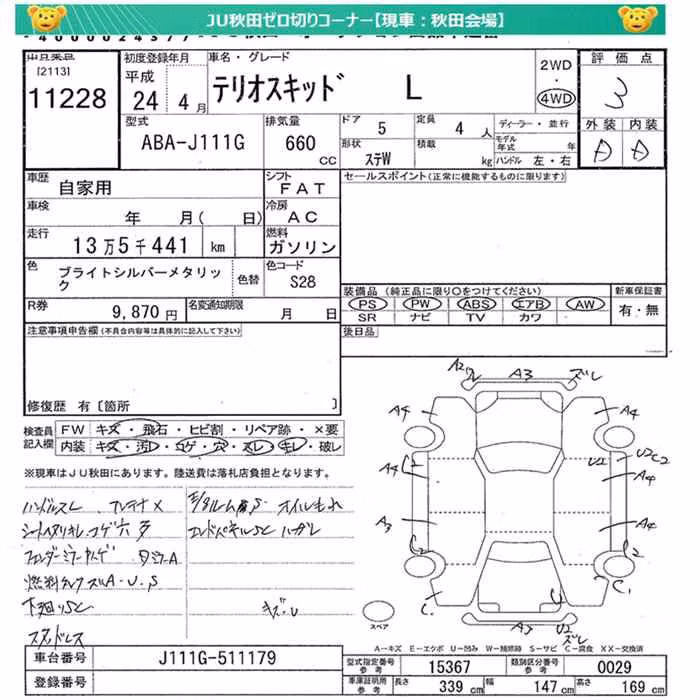 JU秋田ゼロ切りコーナー【現車：秋田会場】
[2113]
11228
初度登録年月
平成
24 4月
車名・グレード
テリオスキッド L
2WD
・
4WD
評価点
3
外装 内装
D D
型式
ABA-J111G
排気量
660 CC
ドア 5
定員 4人
形状 ステW
積載 kg
ディーラー・並行
モデル年式 年
ハンドル 左・右
車歴
自家用
シフト
FAT
セールスポイント(正常に機能するものに限ります)
車検
年 月( 日)
冷房
AC
走行
13万5千441 km
燃料
ガソリン
色
ブライトシルバーメタリック
色替
色コード
S28
R券
9,870円
名変通知期限
月 日
装備品(純正品に限り○をつけてください)
PS PW ABS エアB AW
SR ナビ TV カワ
新車保証書
有・無
後日品
注意事項申告欄(不具合内容等は具体的に記入して下さい)
修復歴 有〔箇所 〕
検査員記入欄
FW キズ・飛石・ヒビ割・リペア跡・×要
内装 キズ・汚レ・コゲ・穴・スレ・キレ・破レ
※現車はJU秋田にあります。陸送費は落札店負担となります。
ハンドルスレ アンテナX
オイルもれ
シートヘタリキレコゲ穴多
エンドパネルSC ハガレ
下廻りSC
キズ・U
スタッドレス
A2 A3 ズレ
A4 A4
A4 U2 U2C2
A4
A3 A4
C2 C2
C1 U C1
A3 U2 ズレ
スペア
A－キズ E－エクボ U－凹み W－補修跡 S－サビ C－腐食 XX－交換済
車台番号 J111G-511179
登録番号
型式指定番号 参考 15367
類別区分番号 参考 0029
車庫証明用 参考 長さ 339 cm 幅 147 cm 高さ 169 cm